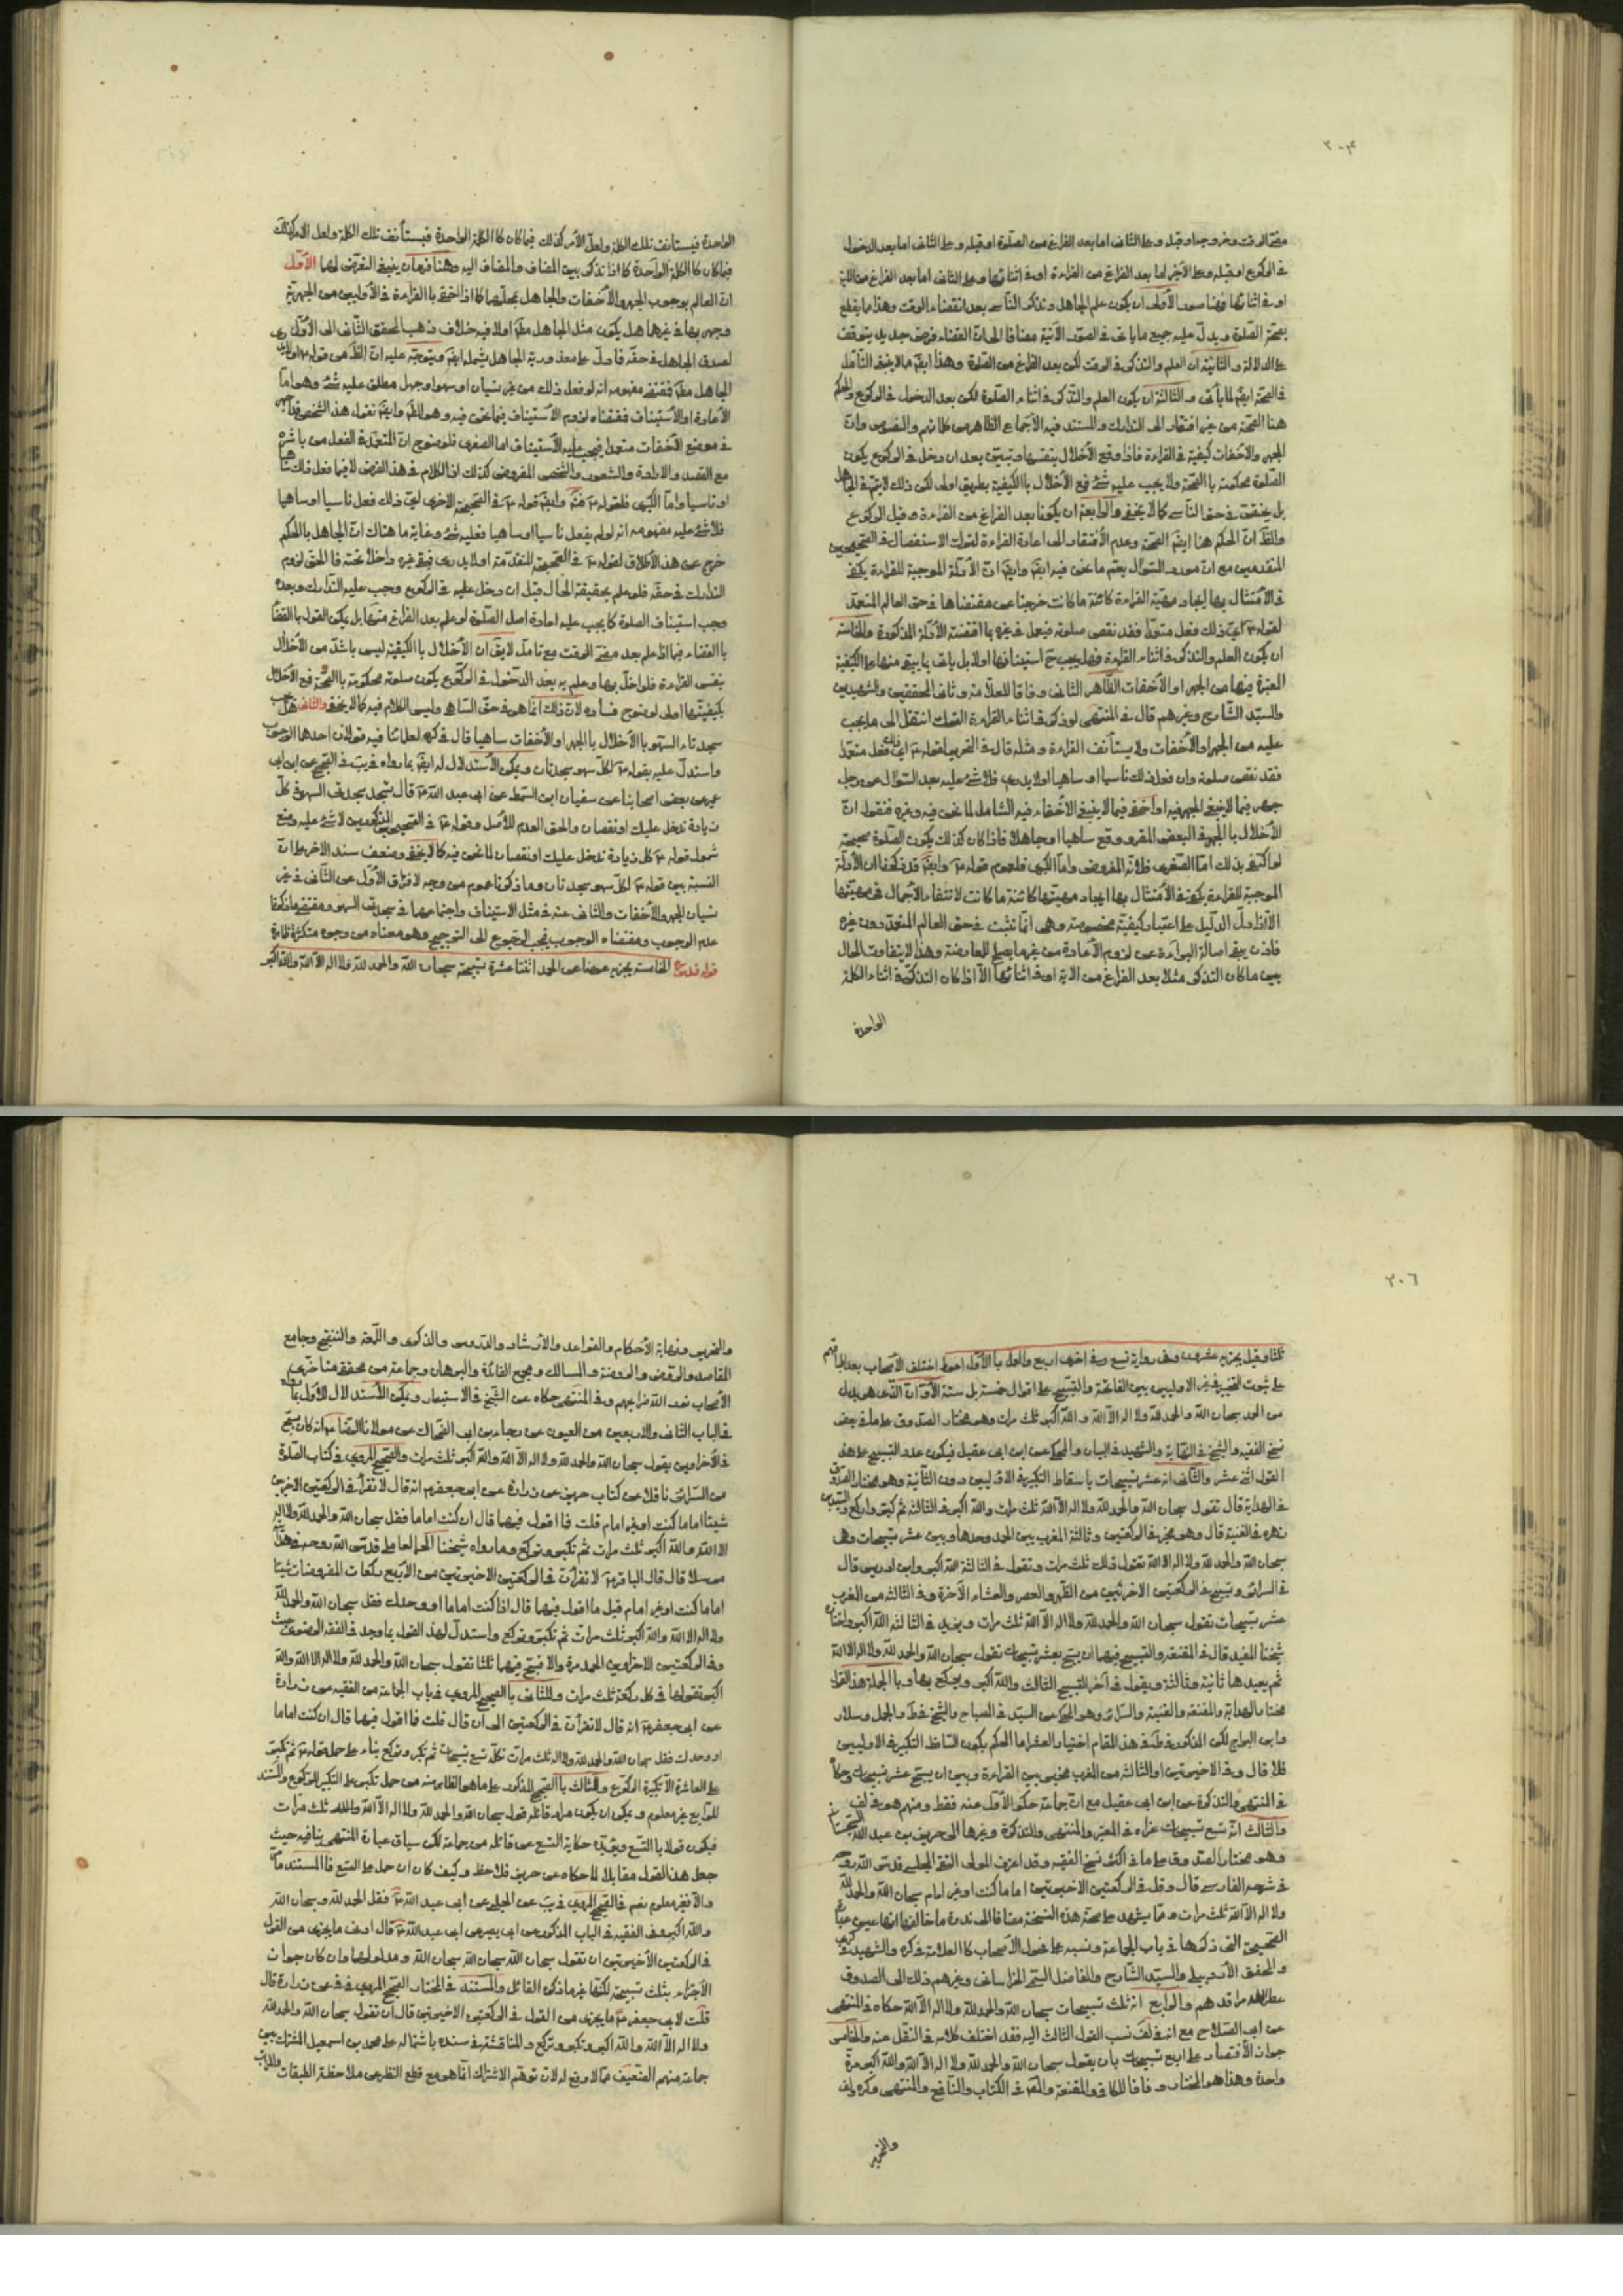 ٣٠٤
مضى الوقت وخروجه او قبله وعلى الثانى اما بعد الفراغ من الصلوة او قبله وعلى الثانى اما بعد الدخول
فى الركوع او قبله وعلى الأخير اما بعد الفراغ من القراءة او فى اثنائها وعلى الثانى اما بعد الفراغ من الاية
او فى اثنائها فهنا صور الأولى ان يكون علم الجاهل وتذكر الناسى بعد انقضاء الوقت وهذا مما يقطع
بصحة الصلوة ويدل عليه جميع ما ياتى فى الصور الآتية مضافا الى ان القضاء فرض جديد يتوقف
على الدلالة والثانية ان العلم والتذكر فى الوقت لكن بعد الفراغ من الصلوة وهذا ايضا مما لا ينبغى التأمل
فى الصحة ايضا لما يأتى والثالثة ان يكون العلم والتذكر فى اثناء الصلوة لكن بعد الدخول فى الركوع والحكم
هنا الصحة من غير افتقار الى التدارك والمستند فيه الأجماع الظاهر من كلماتهم والنصوص وان
الجهر والأخفات كيفية فى القراءة فاذا وقع الأخلال بنفسها وتبين بعد ان دخل فى الركوع يكون
الصلوة محكومة باالصحة ولا يجب عليه شئ فمع الأخلال باالكيفية بطريق اولى لكن ذلك لا يتم فى الجاهل
بل يختص فى حق الناسى كما لا يخفى والرابعة ان يكونا بعد الفراغ من القراءة وقبل الركوع
والظ ان الحكم هنا ايضا الصحة وعدم الأفتقار الى اعادة القراءة لترك الاستفصال فى الصحيحين
المتقدمين مع ان مورد السؤال يعم ما نحن فيه ايضا وايضا ان الأدلة الموجبة للقراءة يكفى
فى الأمتثال بها ايجاد مهية القراءة كائنة ما كانت خرجنا عن مقتضاها فى حق العالم المتعمد
لقوله ع اى ذلك فعل متعمدا فقد نقض صلوته فيعمل فى غيره بما اقتضته الأدلة المذكورة والخامسة
ان يكون العلم والتذكر فى اثناء القراءة فهل يجب ح استينافها اولا بل ياتى بما يبقى منها على الكيفية
المعتبرة فيها من الجهر او الأخفات الظاهر الثانى وفاقا للعلامة وثانى المحققين والشهيدين
والسيد الشارح وغيرهم قال فى المنتهى لو ذكر فى اثناء القراءة الترك انتقل الى ما يجب
عليه من الجهر او الأخفات ولا يستأنف القراءة ومثله قال فى التحرير لقوله ع اى ذلك فعل متعمدا
فقد نقض صلوته وان فعل ذلك ناسيا او ساهيا او لا يدرى فلا شئ عليه بعد السؤال عن رجل
جهر فيما لا ينبغى الجهر فيه او اخفى فيما لا ينبغى الاخفاء فيه الشامل لما نحن فيه وغيره فنقول ان
الأخلال باالجهر فى البعض المقرو وقع ساهيا او جاهلا فاذا كان كذلك يكون الصلوة صحيحة
لو اكتفى بذلك اما الصغرى فلانه المفروض واما الكبرى فلعموم قوله ع وايضا قد ذكرنا ان الأدلة
الموجبة للقراءة يكفى فى الأمتثال بها ايجاد مهيتها كائنة ما كانت لانتفاء الأجمال فى مهيتها
الا اذا دل الدليل على اعتبار كيفية مخصوصة وهى انما ثبتت فى حق العالم المتعمد دون غيره
فاذن يبقى اصالة البراءة عن لزوم الأعادة من غير ما يصلح للمعارضة وهذا لا يتفاوت الحال
بين ما كان التذكر مثلا بعد الفراغ من الاية او فى اثنائها الا اذا كان التذكر فى اثناء الكلمة
الواحدة
الواحدة فيستانف تلك الكلمة ولعل الأمر كذلك فيما كان كاالكلمة الواحدة فيستأنف تلك الكلمة ولعل الامر كذلك
فيما كان كاالكلمة الواحدة كما اذا تذكر بين المضاف والمضاف اليه وهنا فرعان ينبغى التعرض لهما الأول
ان العالم بوجوب الجهر والأخفات والجاهل بمحلهما كما اذا اخفى باالقراءة فى الأوليين من الجهرية
وجهر بها فى غيرها هل يكون مثل الجاهل مط اولا فيه خلاف ذهب المحقق الثانى الى الأول
لصدق الجاهل فى حقه فما دل على معذورية الجاهل يشمله ايضا ويتوجه عليه ان الظ من قوله ع
الجاهل مط فمقتضى مفهومه انه لو فعل ذلك من غير نسيان او سهو او جهل مطلق عليه شئ وهو اما
الأعادة او الأستيناف فمقتضاه لزوم الأستيناف فيما نحن فيه وهو المط وايضا نقول هذا الشخص
فى موضع الأخفات متعمدا فيجب عليه الأستيناف اما الصغرى فلوضوح ان المتعمد فى الفعل من باشره
مع القصد والارادة والشعور والشخص المفروض كذلك اذ الكلام فى هذا الفرض لا فيما فعل ذلك
او ناسيا واما الكبرى فلقوله ع وايضا قوله ع فى الصحيحة الاخرى اى ذلك فعل ناسيا او ساهيا
فلا شئ عليه مفهومه انه لو لم يفعل ناسيا او ساهيا فعليه شئ وغاية ما هناك ان الجاهل بالحكم
خرج عن هذا الأطلاق لقوله ع فى الصحيحة المتقدمة او لا يدرى فبقى غيره داخلا تحته فا الحق لزوم
التدارك فى حقه فلو علم بحقيقة الحال قبل ان دخل عليه فى الركوع وجب عليه التدارك وبعده
وجب استيناف الصلوة كما يجب عليه اعادة اصل الصلوة لو علم بعد الفراغ منها بل يمكن القول باالقضا
باالقضاء فيما اذا علم بعد مضى الوقت مع تامل لا يق ان الأخلال باالكيفية ليس باشد من الأخلال
بنفس القراءة فلو اخل بها وعلم به بعد الدخول فى الركوع يكون صلوته محكومة باالصحة فمع الأخلال
بكيفيتها اولى لوضوح فساده لان ذلك انما هو فى حق الساهى وليس الكلام فيه كما لا يخفى والثانى هل يجب
سجدتا السهو باالأخلال باالجهر او الأخفات ساهيا قال فى كره لعلمائنا فيه قولان احدهما الوجوب
واستدل عليه بقوله ع لكل سهو سجدتان ويمكن الأستدلال له ايضا بما رواه فى يب فى الصحيح عن ابن ابى
عمير عن بعض اصحابنا عن سفيان ابن السمط عن ابى عبد الله ع قال تسجد سجدتى السهو فى كل
زيادة تدخل عليك او نقصان والحق العدم للأصل وقوله ع فى الصحيحين المذكورين لا شئ عليه ومنع
شمول قوله ع كل زيادة تدخل عليك او نقصان لما نحن فيه كما لا يخفى وضعف سند الاخر على ان
النسبة بين قوله ع لكل سهو سجدتان وما ذكرنا عموم من وجه لافتراق الأول عن الثانى فى غير
نسيان الجهر والأخفات والثانى عنه فى مثل الاستيناف واجتماعهما فى سجدتى السهو ومقتضى ما ذكرنا
عدم الوجوب ومقتضاه الوجوب فيجب الرجوع الى الترجيح وهو معناه من وجوه متكثرة ظاهرة
قوله قدس سره الخامسة يجزيه عوضا عن الحمد اثنتا عشرة تسبيحة سبحان الله والحمد لله ولا اله الا الله والله اكبر
٢٠٦
ثلثا وقيل يجزيه عشر وفى رواية تسع وفى اخرى اربع والعمل باالأول احوط اختلف الأصحاب بعد اتفاقهم
على ثبوت التخيير فى غير الاوليين بين الفاتحة والتسبيح على اقوال خمسة بل ستة الأول ان الذى هو بدل
من الحمد سبحان الله والحمد لله ولا اله الا الله والله اكبر ثلث مرات وهو مختار الصدوق على ما فى بعض
نسخ الفقيه والشيخ فى النهاية والشهيد فى البيان والمحكى عن ابن ابى عقيل فيكون عدد التسبيح على هذا
القول اثنى عشر والثانى انه عشر تسبيحات باسقاط التكبير فى الاوليين دون الثالثة وهو مختار الصدوق
فى الهداية قال تقول سبحان الله والحمد لله ولا اله الا الله ثلث مرات والله اكبر فى الثالثة ثم كبر واركع والسيد بن
زهره فى الغنية قال وهو مخير فى الركعتين وثالثة المغرب بين الحمد وحدها وبين عشر تسبيحات وهى
سبحان الله والحمد لله ولا اله الا الله تقول ذلك ثلث مرات وتقول فى الثالثة الله اكبر وابن ادريس قال
فى السرائر وتسبح فى الركعتين الاخرتين من الظهر والعصر والعشاء الأخرة وفى الثالثة من المغرب
عشر تسبيحات تقول سبحان الله والحمد لله ولا اله الا الله ثلث مرات ويزيد فى الثالثة الله اكبر واختاره
شيخنا المفيد قال فى المقنعة والتسبيح فيهما ان يسبح بعشر تسبيحات تقول سبحان الله والحمد لله ولا اله الا الله
ثم يعيدها ثانية وثالثة ويقول فى آخر التسبيح الثالث والله اكبر ويركع بها وباالجملة هذا القول
مختار الهداية والمقنعة والغنية والسرائر وهو المحكى عن السيد فى المصباح والشيخ فى ط والجمل وسلار
وابن البراج لكن المذكور فى ط فى هذا المقام اختيار العشر اما الحكم بكون الساقط التكبير فى الاوليين
فلا قال وفى الاخيرتين او الثالثة من المغرب مخير بين القراءة وبين ان يسبح عشر تسبيحات وحكاه
فى المنتهى والتذكرة عن ابن ابى عقيل مع ان جماعة حكوا الأول عنه فقط ومنهم هو فى لف
والثالث انه تسع تسبيحات عزاه فى المعتبر والمنتهى والتذكرة وغيرها الى حريز بن عبد الله السجستانى
وهو مختار الصدوق على ما فى اكثر نسخ الفقيه وقد اعترف المولى التقى المجلسى قدس الله روحه
فى شرحه الفارسى قال وقل فى الركعتين الاخيرتين اماما كنت او غير امام سبحان الله والحمد لله
ولا اله الا الله ثلث مرات ومما يشهد على صحة هذه النسخة مضافا الى ندرة ما خالفها انها عين عبارة
الصحيحة التى ذكرها فى باب الجماعة ونسبه على فحول الأصحاب كا العلامة فى كره والشهيد فى كرى
والمحقق الأردبيلى والسيد الشارح والفاضل السمى الخراسانى وغيرهم ذلك الى الصدوق
عطر الله مراقدهم والرابع انه ثلث تسبيحات سبحان الله والحمد لله ولا اله الا الله حكاه فى المنتهى
عن ابى الصلاح مع انه فى لف نسب القول الثالث اليه فقد اختلف كلامه فى النقل عنه والخامس
جواز الأقتصار على اربع تسبيحات بان يقول سبحان الله والحمد لله ولا اله الا الله والله اكبر مرة
واحدة وهذا هو المختار وفاقا للكافى والمقنعة والمص فى الكتاب والنافع والمنتهى وكره ولف
والتحرير
والتحرير ونهاية الأحكام والقواعد والأرشاد والدروس والذكرى واللمعة والتنقيح وجامع
المقاصد والروض والروضة والمسالك ومجمع الفائدة والبرهان وجماعة من محققى متاخرى
الأصحاب نور الله مزاجهم وفى المنتهى حكاه عن الشيخ فى الاستبصار ويمكن الأستدلال للأول بما رواه
فى الباب الثانى والاربعين من العيون عن رجاء بن ابى الضحاك عن مولانا الرضا ع انه كان يسبح
فى الأخراوين يقول سبحان الله والحمد لله ولا اله الا الله والله اكبر ثلث مرات والصحيح المروى فى كتاب الصلوة
من السرائر نافلا عن كتاب حريز عن زرارة عن ابى جعفر ع انه قال لا تقرأ فى الركعتين الاخيرتين
شيئا اماما كنت او غير امام قلت فما اقول فيهما قال ان كنت اماما فقل سبحان الله والحمد لله ولا اله
الا الله والله اكبر ثلث مرات ثم تكبر وتركع وما رواه شيخنا الحر العاملى قدس الله روحه
مرسلا قال قال الباقر ع لا تقرأن فى الركعتين الاخيرتين من الأربع ركعات المفروضات شيئا
اماما كنت او غير امام قيل ما اقول فيهما قال اذا كنت اماما او وحدك فقل سبحان الله والحمد لله
ولا اله الا الله والله اكبر ثلث مرات ثم تكبر وتركع واستدل لهذا القول بما وجد فى الفقه الرضوى حيث
وفى الركعتين الاخراوين الحمد مرة والا فسبح فيهما ثلثا ثلثا تقول سبحان الله والحمد لله ولا اله الا الله والله
اكبر تقولها فى كل ركعة ثلث مرات وللثانى باالصحيح المروى فى باب الجماعة من الفقيه عن زرارة
عن ابى جعفر ع انه قال لا تقرأن فى الركعتين الى ان قال قلت فما اقول فيهما قال ان كنت اماما
او وحدك فقل سبحان الله والحمد لله ولا اله ثلث مرات تكمله تسع تسبيحات ثم تكبر وتركع بناء على حمل قوله ع ثم تكبر
على العاشرة الا تكبيرة الركوع وللثالث باالصحيح المذكور على ما هو الظاهر منه من حمل تكبر على التكبير للركوع والمستند
للرابع غير معلوم ويمكن ان يكون مراد قائله قول سبحان الله والحمد لله ولا اله الا الله ثلث مرات
فيكون قولا باالتسع ويؤيده حكاية التسع عن قائله من جماعة لكن سياق عبارة المنتهى ينافيه حيث
جعل هذا القول مقابلا لما حكاه عن حريز فلاحظ وكيف كان ان حمل على التسع فا المستند ما مر
والا فغير معلوم نعم فى الصحيح المروى فى يب عن الحلبى عن ابى عبد الله ع فقل الحمد لله وسبحان الله
والله اكبر وفى الفقيه فى الباب المذكور عن ابى بصير عن ابى عبد الله ع قال ادنى ما يجزى من القول
فى الركعتين الأخيرتين ان تقول سبحان الله سبحان الله سبحان الله ومدلولهما وان كان جواز
الأجتزاء بثلث تسبيحة لكنها غير ما ذكره القائل والمستند فى المختار الصحيح المروى فى فى عن زرارة قال
قلت لابى جعفر ع ما يجزى من القول فى الركعتين الاخيرتين قال ان تقول سبحان الله والحمد لله
ولا اله الا الله والله اكبر وتكبر وتركع والمناقشة فى سنده باشتماله على محمد بن اسمعيل المشترك بين
جماعة منهم الضعيف مما لا وقع له لان توهم الاشتراك انما هو مع قطع النظر عن ملاحظة الطبقات والمراتب